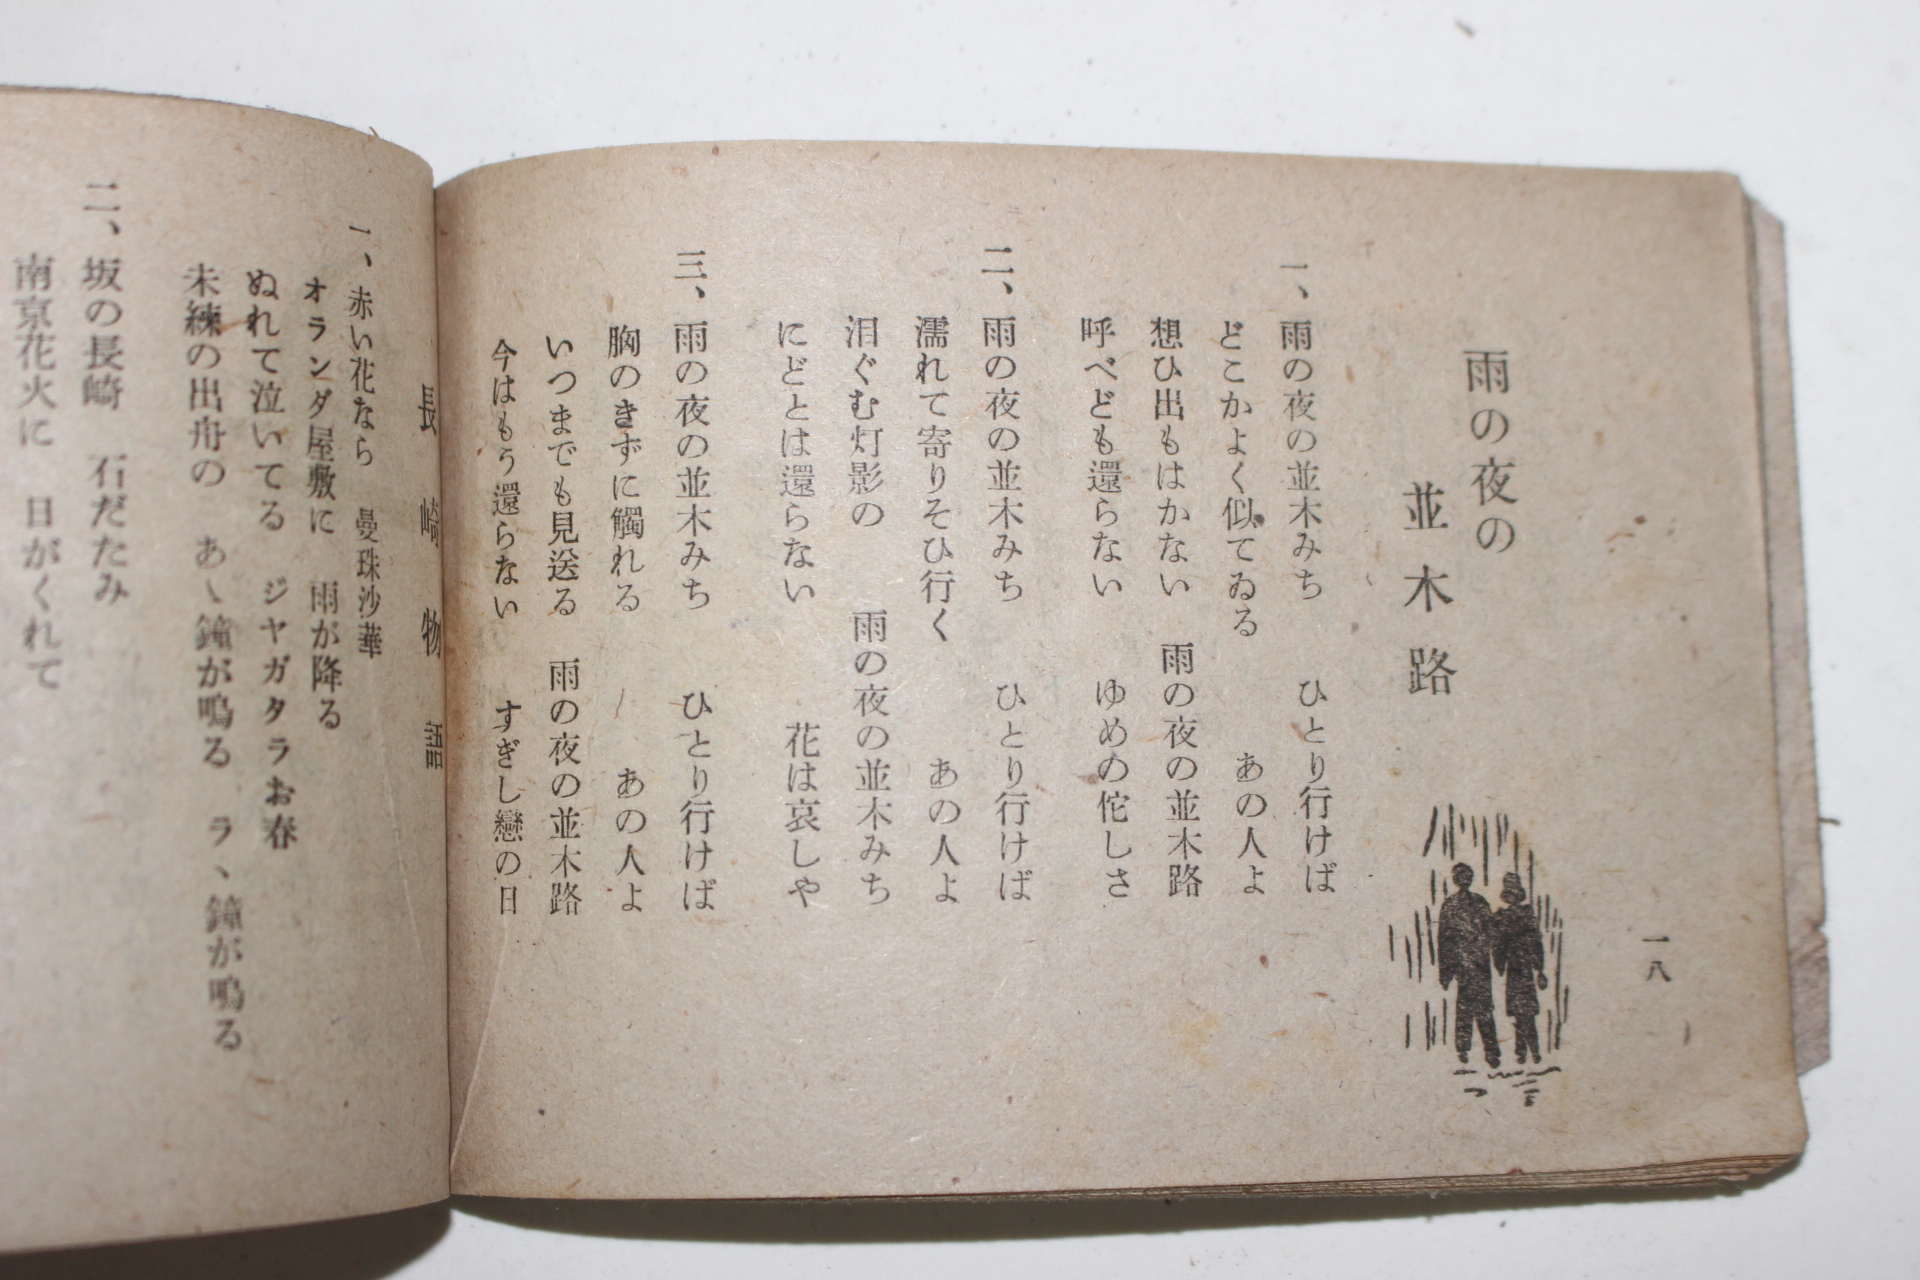 一八
雨の夜の
並木路
一、雨の夜の並木みち　ひとり行けば
どこかよく似てゐる　あの人よ
想ひ出もはかない　雨の夜の並木路
呼べども還らない　ゆめの侘しさ
二、雨の夜の並木みち　ひとり行けば
濡れて寄りそひ行く　あの人よ
泪ぐむ灯影の　雨の夜の並木みち
にどとは還らない　花は哀しや
三、雨の夜の並木みち　ひとり行けば
胸のきずに觸れる　あの人よ
いつまでも見送る　雨の夜の並木路
今はもう還らない　すぎし戀の日
長崎物語
一、赤い花なら　曼珠沙華
オランダ屋敷に　雨が降る
ぬれて泣いてる　ジヤガタラお春
未練の出舟の　あゝ鐘が鳴る　ラヽ鐘が鳴る
二、坂の長崎　石だたみ
南京花火に　日がくれて